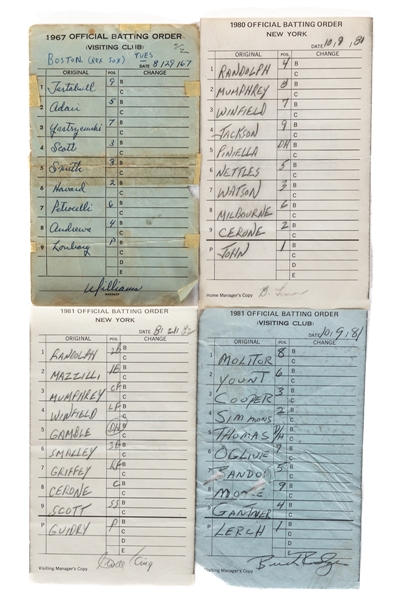 1967 OFFICIAL BATTING ORDER
(VISITING CLUB)
BOSTON (RED SOX) TUES
DATE 8/29/67
ORIGINAL POS. CHANGE
1 Tartabull 9 B
C
2 Adair 5 B
C
3 Yastrzemski 7 B
C
4 Scott 3 B
C
5 Smith 8 B
C
6 Howard 2 B
C
7 Petrocelli 6 B
C
8 Andrews 4 B
C
9 Lonborg P B
C
D
E
Williams
MANAGER
1980 OFFICIAL BATTING ORDER
NEW YORK
DATE 10,9,81
ORIGINAL POS. CHANGE
1 RANDOLPH 4 B
C
2 MUMPHREY 8 B
C
3 WINFIELD 7 B
C
4 JACKSON 9 B
C
5 PINIELLA DH B
C
6 NETTLES 5 B
C
7 WATSON 3 B
C
8 MILBOURNE 6 B
C
9 CERONE 2 B
C
P JOHN 1 B
C
D
E
Home Manager's Copy
1981 OFFICIAL BATTING ORDER
NEW YORK
DATE
ORIGINAL POS. CHANGE
1 RANDOLPH 2B B
C
2 MAZZILLI 1B B
C
3 MUMPHREY CF B
C
4 WINFIELD LF B
C
5 GAMBLE DH B
C
6 SMALLEY 3B B
C
7 GRIFFEY RF B
C
8 CERONE C B
C
9 SCOTT SS B
C
P GUIDRY P B
C
D
E
Visiting Manager's Copy Clyde King
1981 OFFICIAL BATTING ORDER
(VISITING CLUB)
DATE 10,9,81
ORIGINAL POS. CHANGE
1 MOLITOR 8 B
C
2 YOUNT 6 B
C
3 COOPER 3 B
C
4 SIMMONS 2 B
C
5 THOMAS DH B
C
6 OGLIVIE 7 B
C
7 BANDO 5 B
C
8 MOORE 9 B
C
9 GANTNER 4 B
C
P LERCH 1 B
C
D
E
Visiting Manager's Copy Buck Rodgers